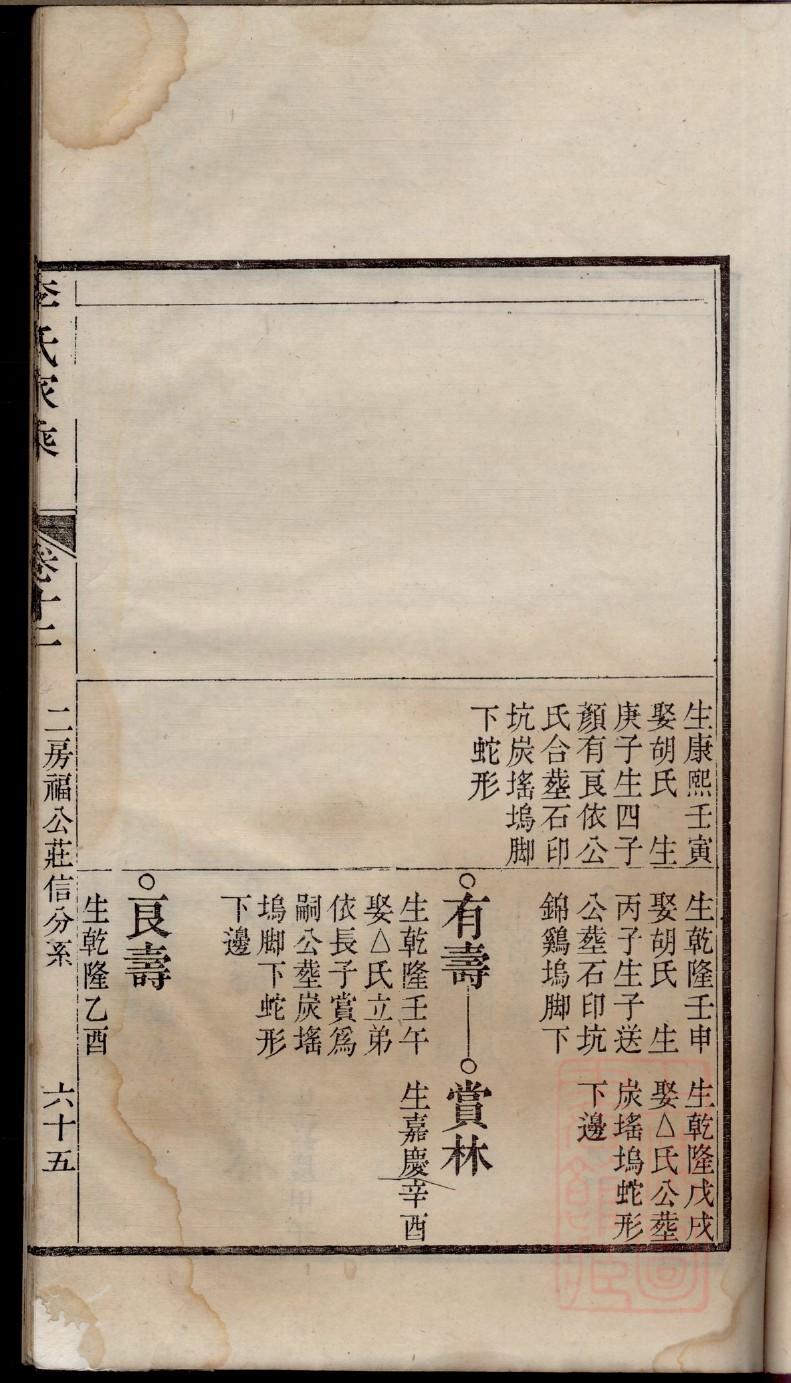 生康熙壬寅
娶胡氏　生
庚子生四子
顏有良依公
氏合塟石印
坑炭瑤塢脚
下蛇形
生乾隆壬申
娶胡氏　生
丙子生子送
公塟石印坑
錦鷄塢脚下
○有壽
生乾隆壬午
娶△氏立弟
依長子賞爲
嗣公塟炭瑤
塢脚下蛇形
下邊
○良壽
生乾隆乙酉
生乾隆戊戌
娶△氏公塟
炭瑤塢蛇形
下邊
○賞林
生嘉慶辛酉
李氏家乘
卷十二
二房福公莊信分系
六十五